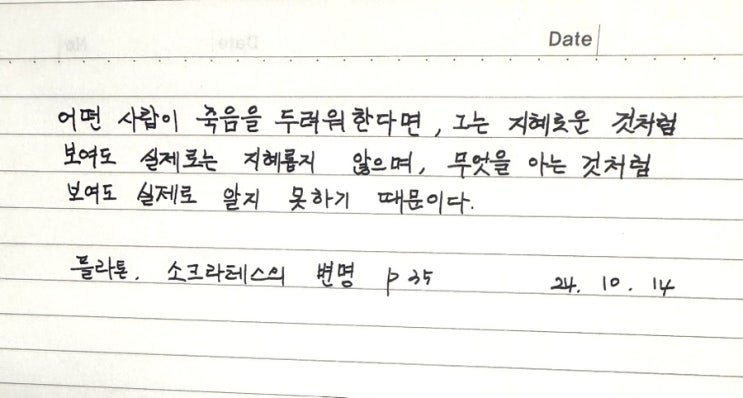 Date
어떤 사람이 죽음을 두려워한다면, 그는 지혜로운 것처럼
보여도 실제로는 지혜롭지 않으며, 무엇을 아는 것처럼
보여도 실제로 알지 못하기 때문이다.
플라톤. 소크라테스의 변명 p 35 24. 10. 14